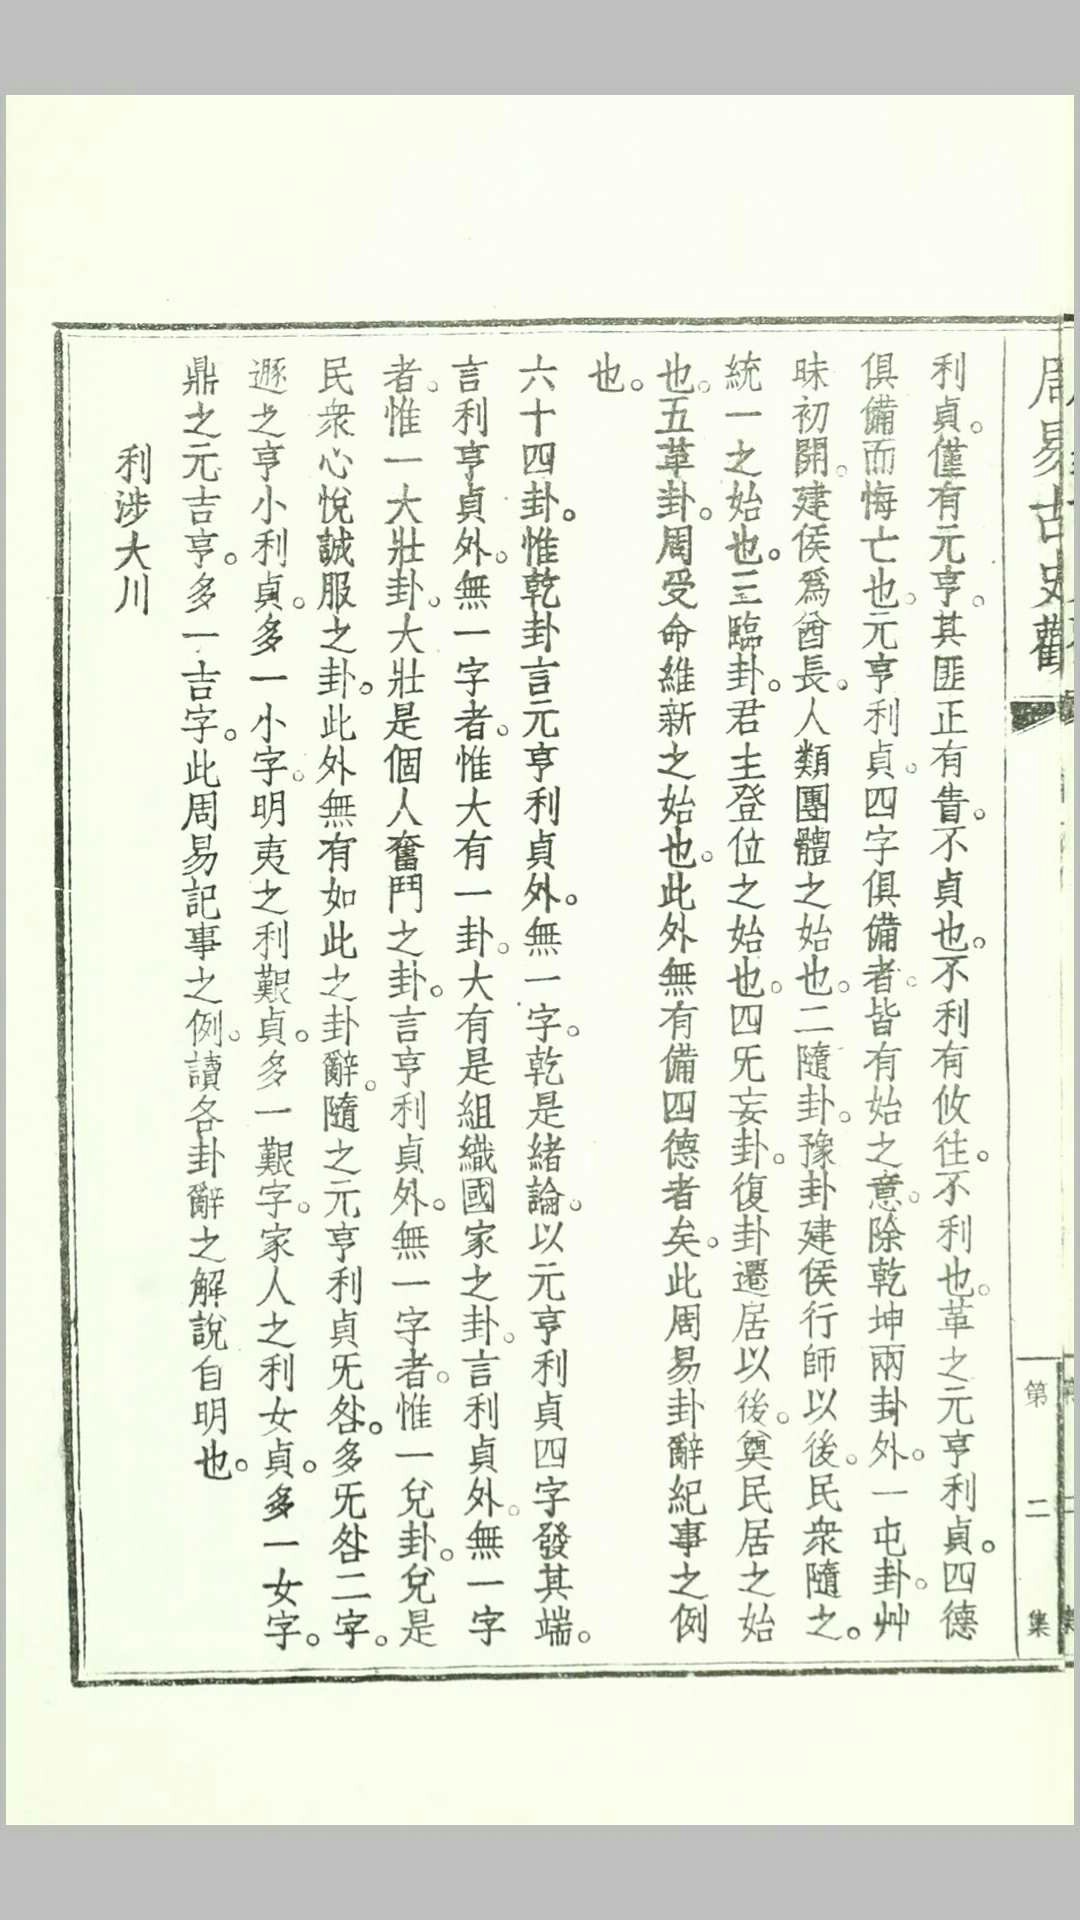 周易古史觀
第二集
利貞。僅有元亨。其匪正有眚。不貞也。不利有攸往。不利也。革之元亨利貞。四德
俱備而悔亡也。元亨利貞。四字俱備者。皆有始之意。除乾坤兩卦外。一屯卦。艸
昧初開。建侯爲酋長。人類團體之始也。二隨卦。豫卦建侯行師以後。民衆隨之。
統一之始也。三臨卦。君主登位之始也。四旡妄卦。復卦遷居以後。奠民居之始
也。五革卦。周受命維新之始也。此外無有備四德者矣。此周易卦辭紀事之例
也。
六十四卦。惟乾卦言元亨利貞外。無一字。乾是緒論。以元亨利貞四字發其端。
言利亨貞外。無一字者。惟大有一卦。大有是組織國家之卦。言利貞外。無一字
者。惟一大壯卦。大壯是個人奮鬥之卦。言亨利貞外。無一字者。惟一兌卦。兌是
民衆心悅誠服之卦。此外無有如此之卦辭。隨之元亨利貞旡咎。多旡咎二字。
遯之亨小利貞。多一小字。明夷之利艱貞。多一艱字。家人之利女貞。多一女字。
鼎之元吉亨。多一吉字。此周易記事之例。讀各卦辭之解說自明也。
利涉大川